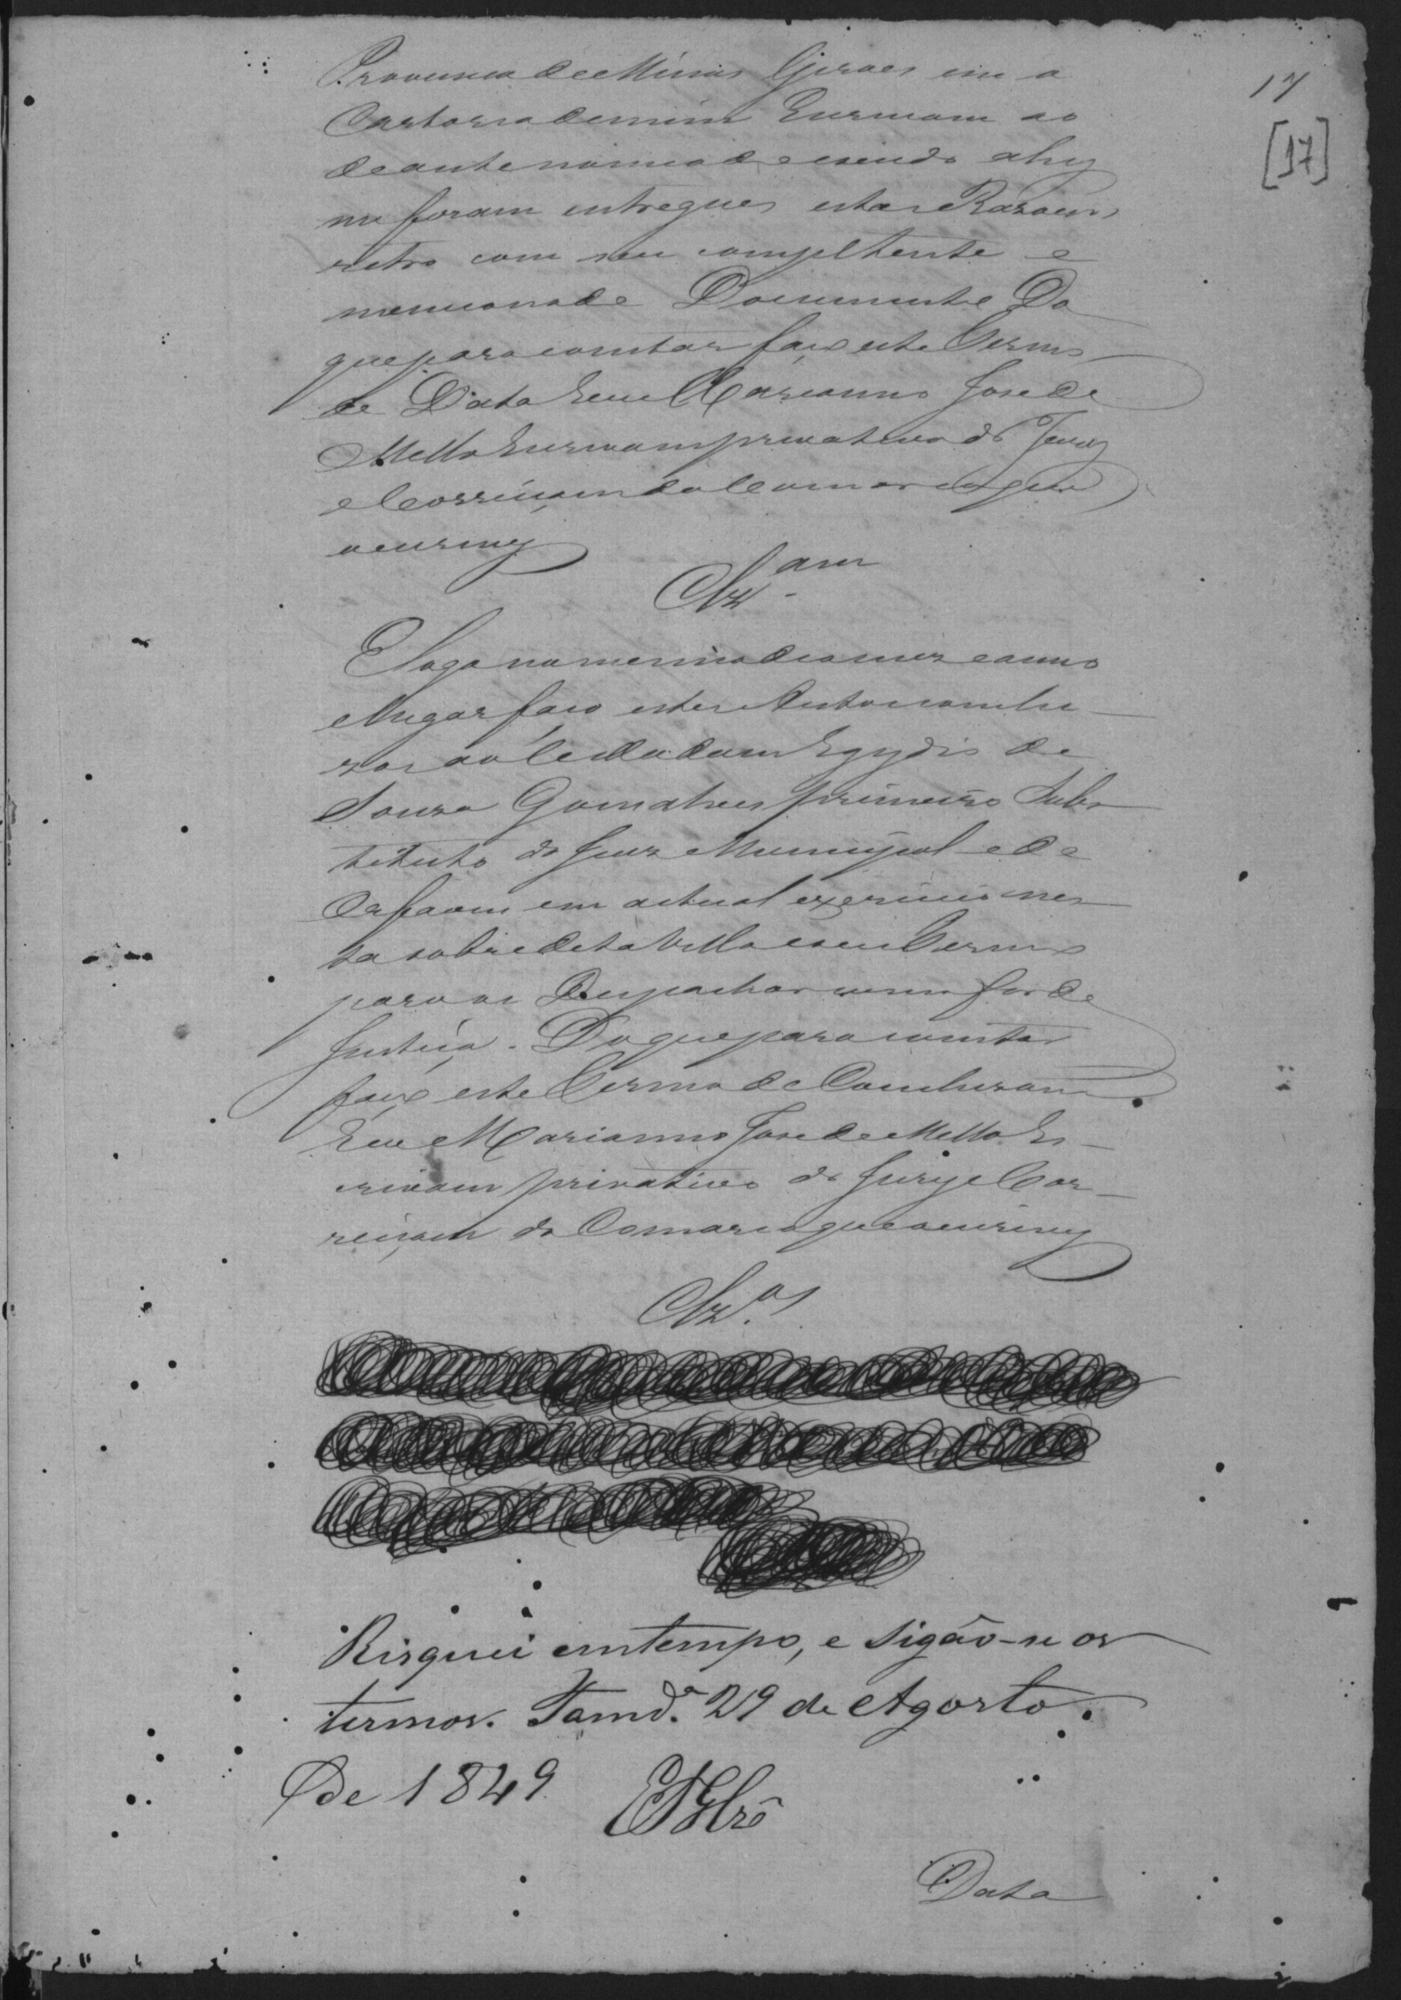 17
[17]
Provincia de Minas Geraes em o
Cartorio de mim Escrivam ao
deante nomeado e sendo ahy
me foram entregues estas Rasoens
retro com seu compettente e
mencionado Documento Do
que para constar faço este Termo
de Data Eu Marianno Jose de
Mello Escrivam privativo do Jury
e Correiçam da Comarca que
o escrevy
Clz.am
E logo no mesmo dia mes e anno
e lugar faço estes Autos conclu-
zos ao Cidadam Egydio de
Souza Gonsalves primeiro Subs-
tituto do Juiz Municipal e de
Orfaons em actual exercicio nes-
ta sobredita Villa e seu Termo
para os Despachar como for de
Justiça. Do que para constar
faço este Termo de Concluzam
Eu Marianno Jose de Mello Es-
crivam privativo do Jury e Cor-
reiçam da Comarca que o escrevy
Clz.os
Risquei em tempo, e sigão-se os
termos. Tamd.ª 29 de Agosto
de 1849
Data